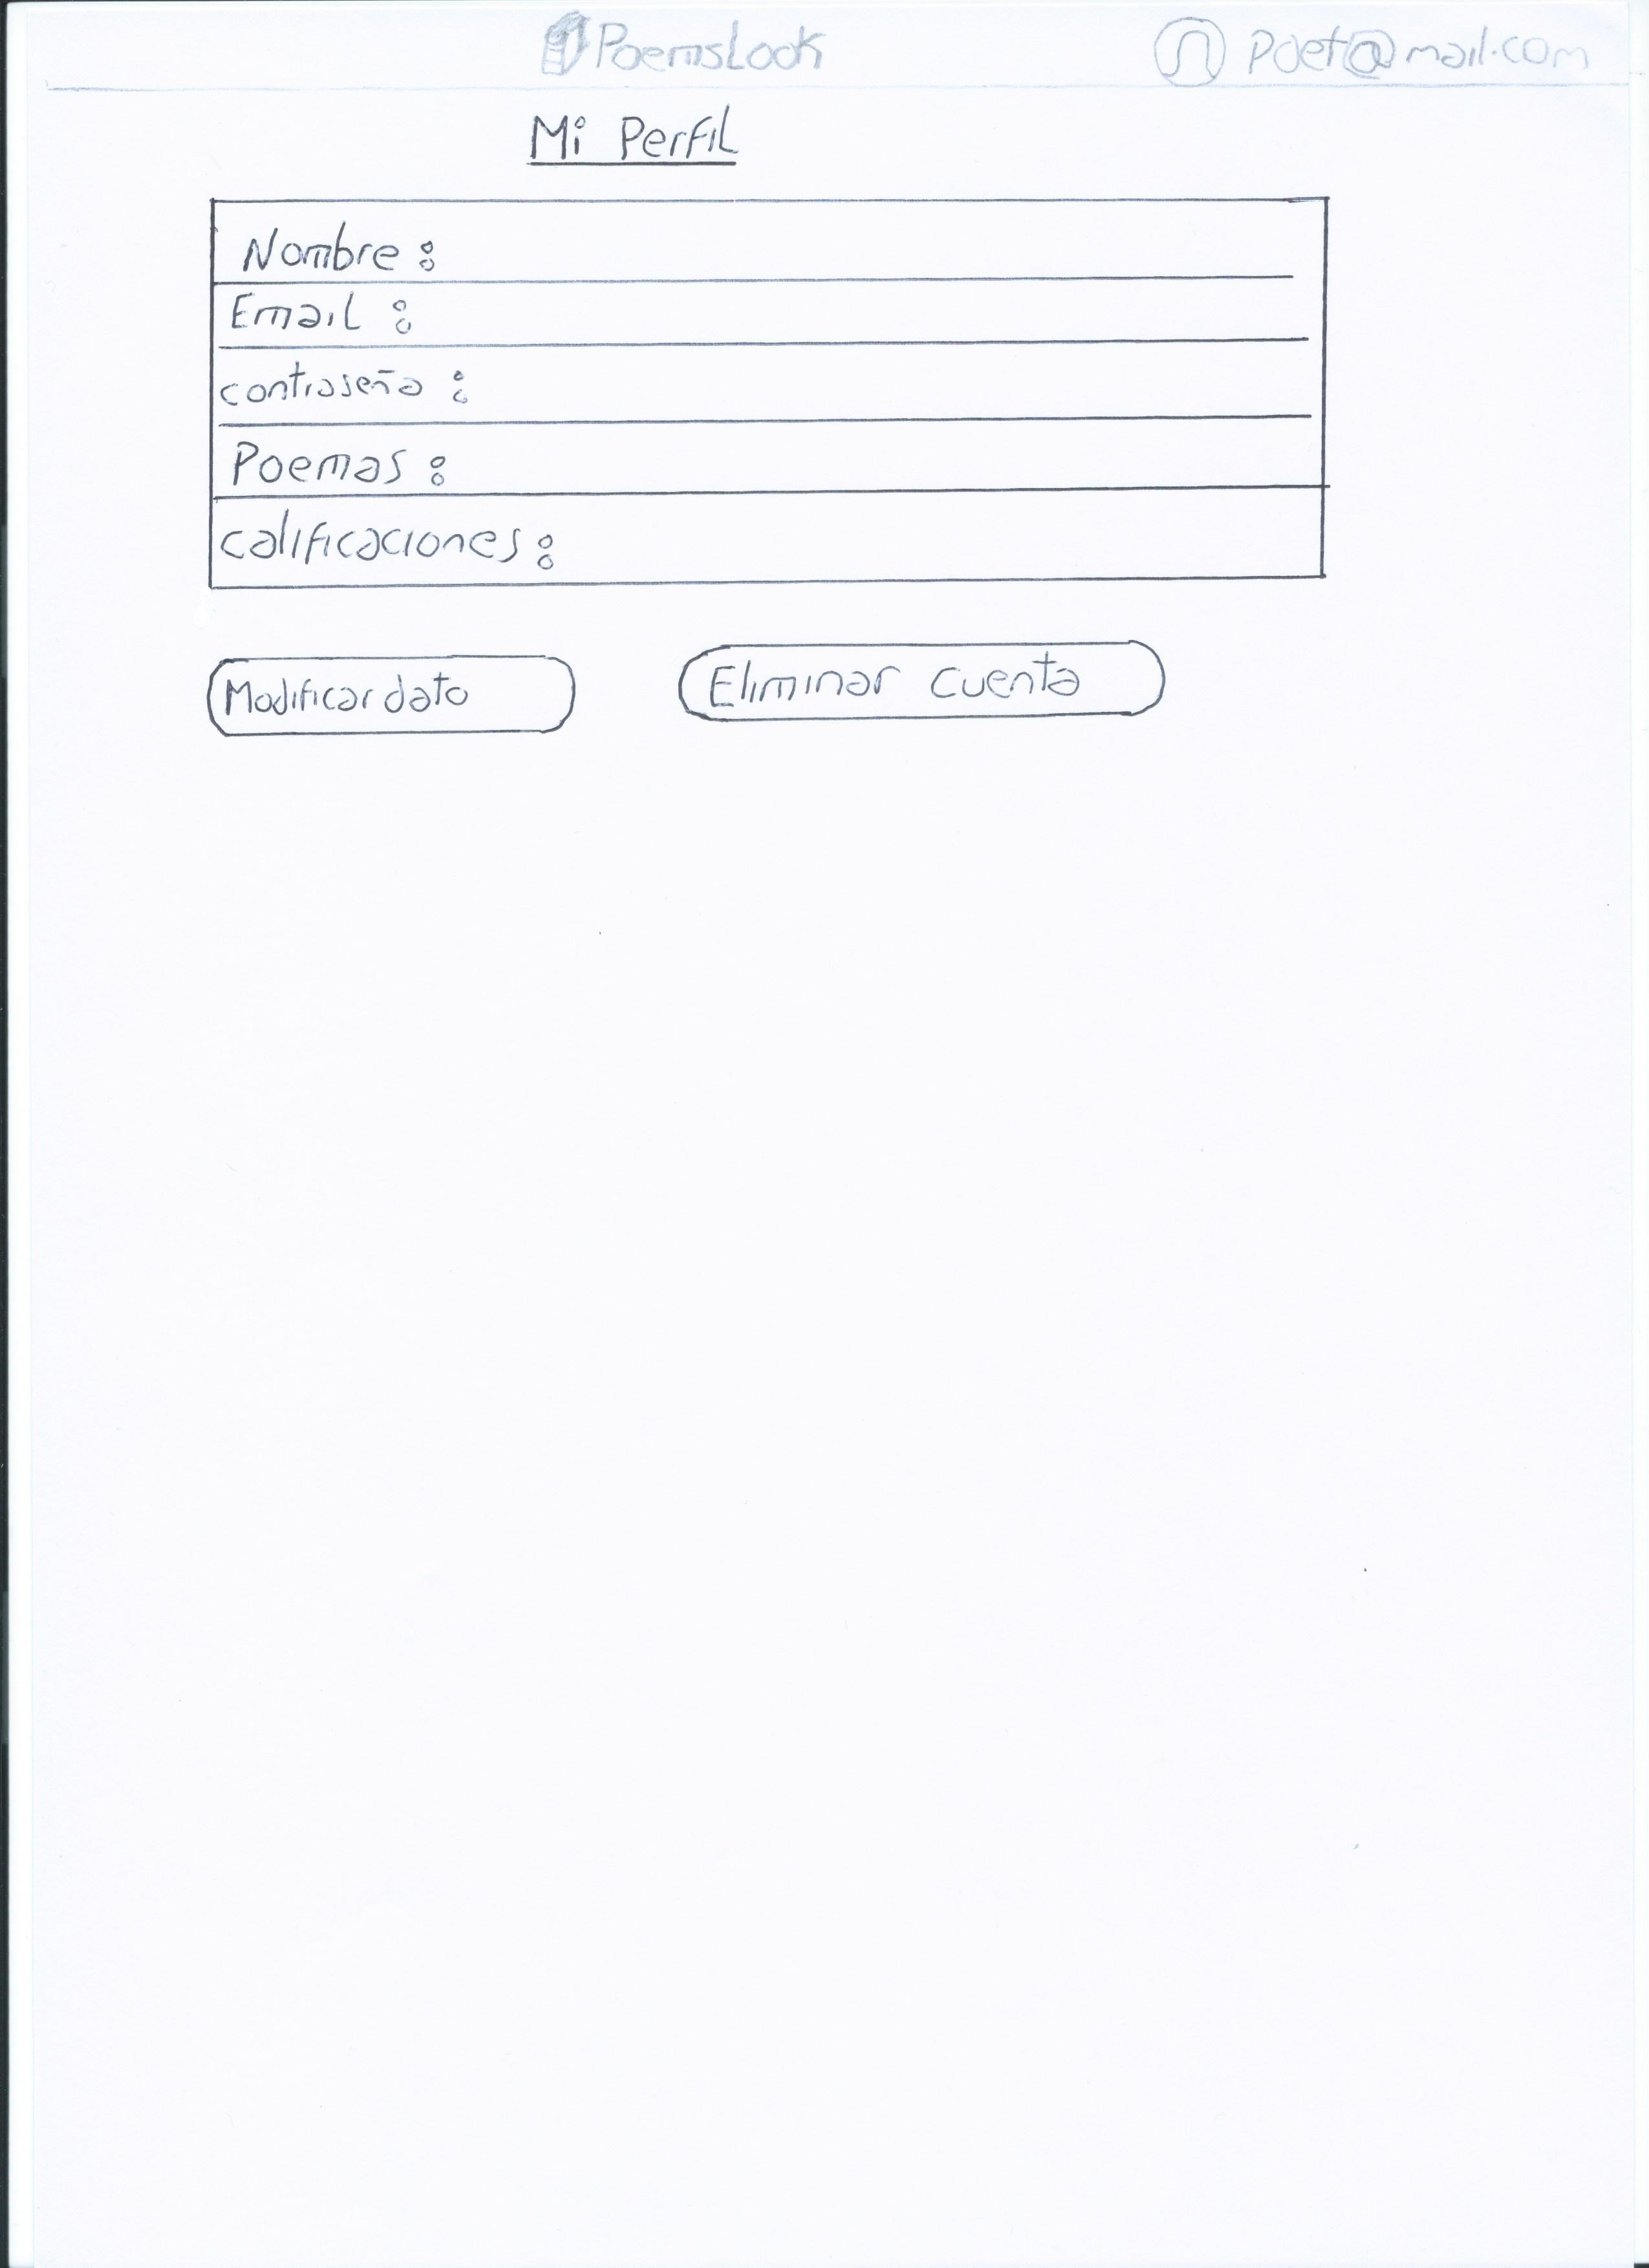 PoemsLook
Poet@mail.com
Mi Perfil
Nombre:
Email:
contraseña:
Poemas:
calificaciones:
Modificar dato
Eliminar cuenta